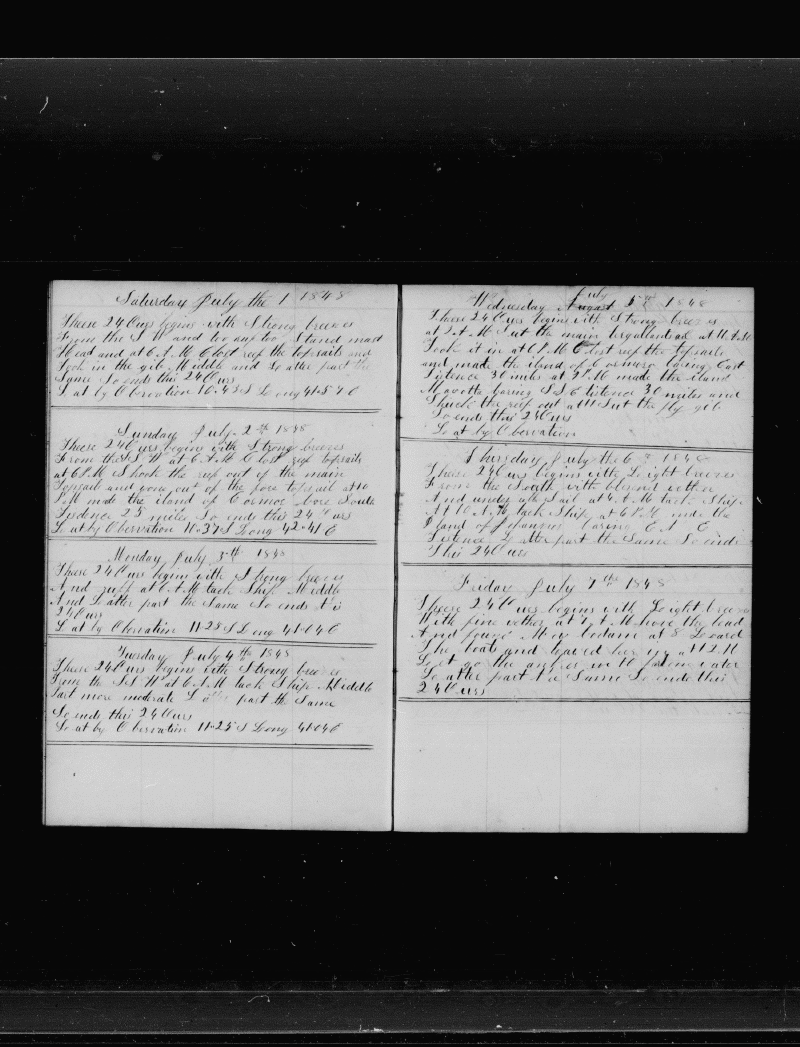 Saturday July the 1 1848
Theese 24 Ours begins with Strong breezes
From the S W and too any too Stand mast
Head and at 6 A. M Clost reep the topsails and
Took in the gib Middle and Latter part the
Same So ends this 24 Ours
Lat by Obervation 10.43 S Long 41.57 E
Sunday July 2th 1848
Theese 24 Ours begins with Strong breezes
From the S W at 6 A. M Clost reep topsails
at 6 P.M Shook the reep out of the main
Topsail and gone out of the fore topsail at 10
P.M made the iland of Comoe bore South
Distence 25 miles So ends this 24 Ours
Lat by Obervation 11.37 S Long 42.41 E
Monday July 3th 1848
Theese 24 Ours begins with Strong breezes
And ruff at 6 A M tack Ship Middle
And Latter part the Same So ends this
24 Ours
Lat by Obervation 11.28 S Long 41.04 E
Tuesday July 4th 1848
Theese 24 Ours begins with Strong breezes
From the S W at 6 A. M tack Ship Middle
Part more moderate Latter part the Same
So ends this 24 Ours
Lat by Obervation 11.25 S Long 41.04 E
July
Wednesday August 5th 1848
Theese 24 Ours begins with Strong breezes
at 2 A. M Sut the main torgallantsail at 11 A. M
Took it in at 6 P. M Clost reep the topsails
and made the iland of Comoro baring East
Distence 30 miles at 3 P. M made the iland
Mayotta baring S S E distence 30 miles and
Shuck the reep out at 11 Sut the fly gib
So ends this 24 Ours
Lat by Obervation
Thursday July the 6th 1848
Theese 24 Ours begins with Light breezes
From the South with plesent wether
And under all Sail at 4 A. M tack Ship
At 10 A. M tack Ship at 6 P. M made the
Iland of Johannies baring E
Distence Latter part the Same So ends
This 24 Ours
Friday July 7th 1848
Theese 24 Ours begins with Light breezes
With fine wether at 7 A. M hove the lead
And found no bodam at 8 Loard
The boats and towed her in at 12 M
Let go the anchor in 16 fadom water
Latter part the Same So ends this
24 Ours